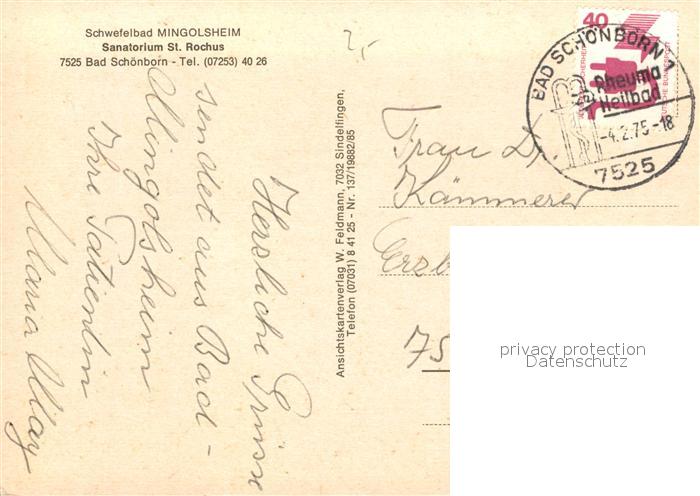 Schwefelbad MINGOLSHEIM
Sanatorium St. Rochus
7525 Bad Schönborn - Tel. (07253) 40 26
Herzliche Grüsse
sendet aus Bad-
Mingolsheim
Ihre Patientin
Maria May
Ansichtskartenverlag W. Feldmann, 7032 Sindelfingen,
Telefon (07031) 8 41 25 - Nr. 137/19882/85
40
DEUTSCHE BUNDESPOST
BAD SCHÖNBORN 1
Rheuma
Heilbad
-4.2.75-18
7525
Frau Dr.
Kämmerer
Erzb
75
privacy protection
Datenschutz